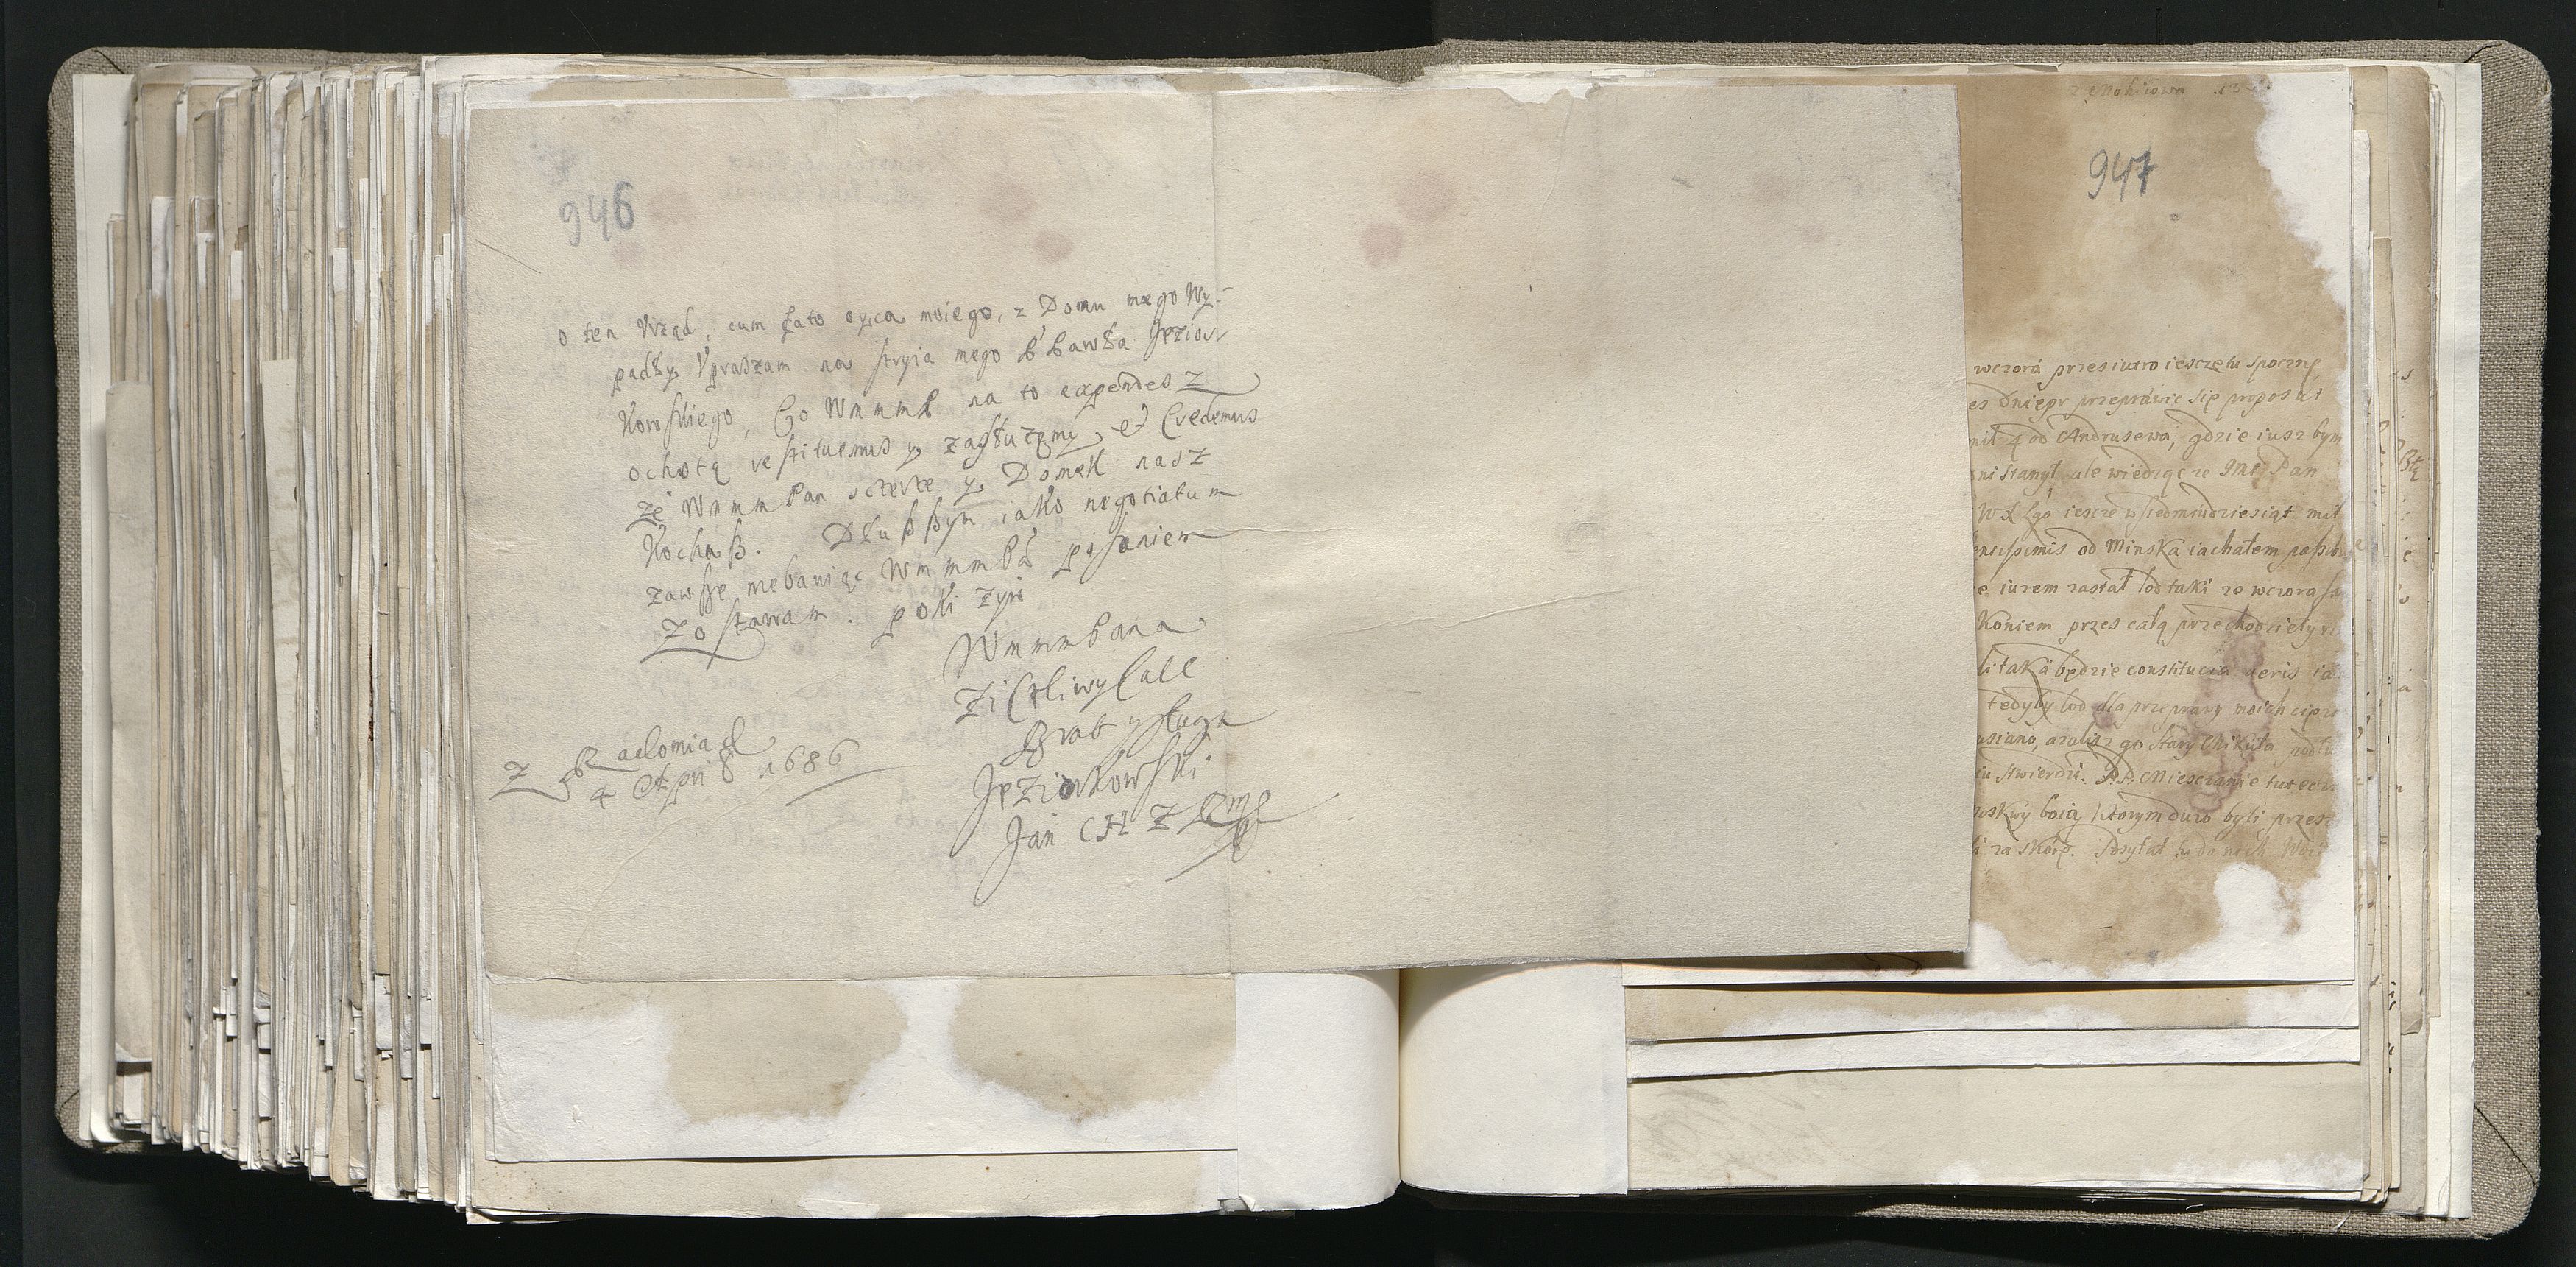 946
o ten Vrząd, cum fato oyca moiego, z Domu mego Wy-
padły Vpraszam na stryia mego P Pawła Jezior
kowskiego, Co Wmmmp na to expendes z
ochotą restituemus y zasłużemy, et Credemus
że WmmmPan sczerze y Domek nasz
Kochasz. Dłuższym iako negotiatum
zawsze niebawiąc WmmmPa pisaniem
Zostawam. poki żyię
WmmmPana
Życzliwy Cale
Brat y sługa
Jeziorkowski
Jan CH Z
Z Radomia d
4 Apri 1686
z Mohilowa
947
wczorá przes iutro iescze tu spocznę
es Dniepr przepráwic się proposui
mil 4 od Andrusewa, gdzie iusz bym
ni stanył ale wiedząc ze Jmć Pan
iescze w siedmiudziesiąt mil
od Minska iachałem
e iurem zastał lod taki ze wczora
Koniem przes całą przechodziely
li taká będzie constitucia aeris ia
tedyby lod dla przeprawy moich
usiano, azalisz go Stary Mikuła
iu stwierdzi. PP. Miesczanie tuteczn
oskwy boią ktorym duzo byli przes
li za skorę. Posyłał tu do nich